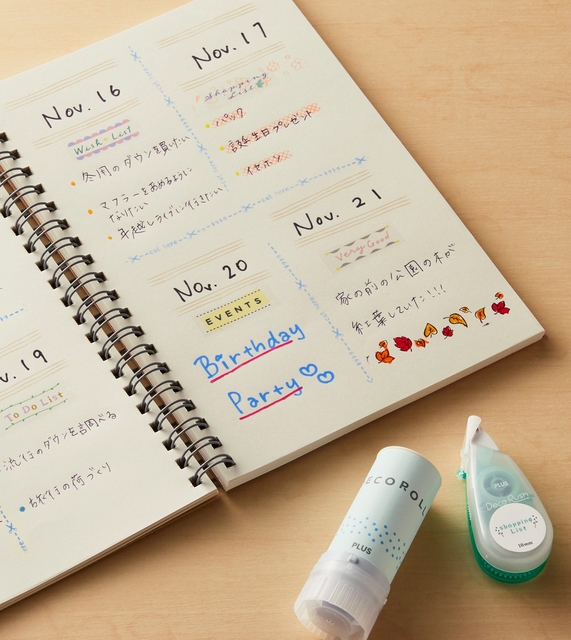 Nov. 16
Wish List
冬用のダウンを買いたい
マフラーをあめるように
なりたい
年越しライブに行きたい
Nov. 17
Shopping
List
パック
誕生日プレゼント
イヤホン
v. 19
To Do List
流行のダウンを調べる
旅行の荷づくり
Nov. 20
EVENTS
Birthday
Party
Nov. 21
Very Good
家の前の公園の木が
紅葉していた!!!
ECOROLL
PLUS
PLUS
Deco Rush
Shopping
List
10mm